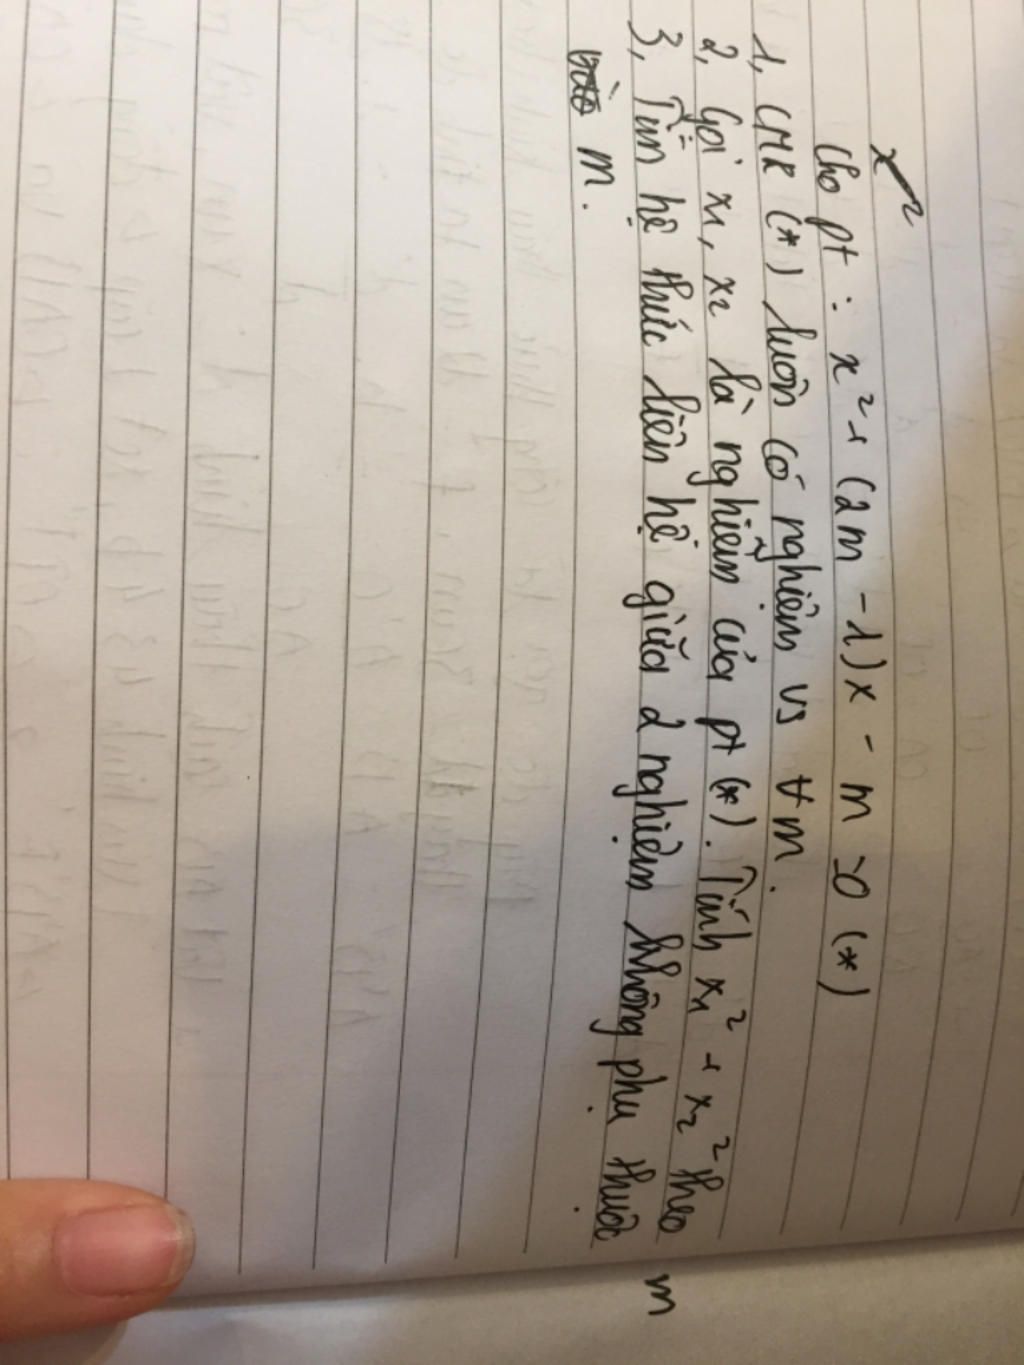 x²
Cho pt : x² + (2m - 1)x - m = 0 (*)
1, CMR (*) luôn có nghiệm vs ∀m.
2, Gọi x₁, x₂ là nghiệm của pt (*). Tính x₁² + x₂² theo m
3, Tìm hệ thức liên hệ giữa 2 nghiệm không phụ thuộc
vào m.